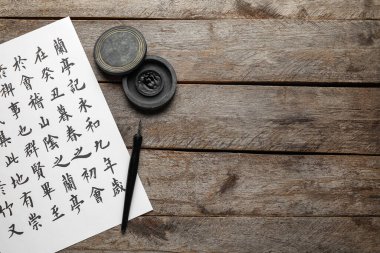 蘭亭記永和九年歲
在癸丑暮春之初會
於會稽山陰之蘭亭
禊事也群賢畢至
此地有崇
竹又